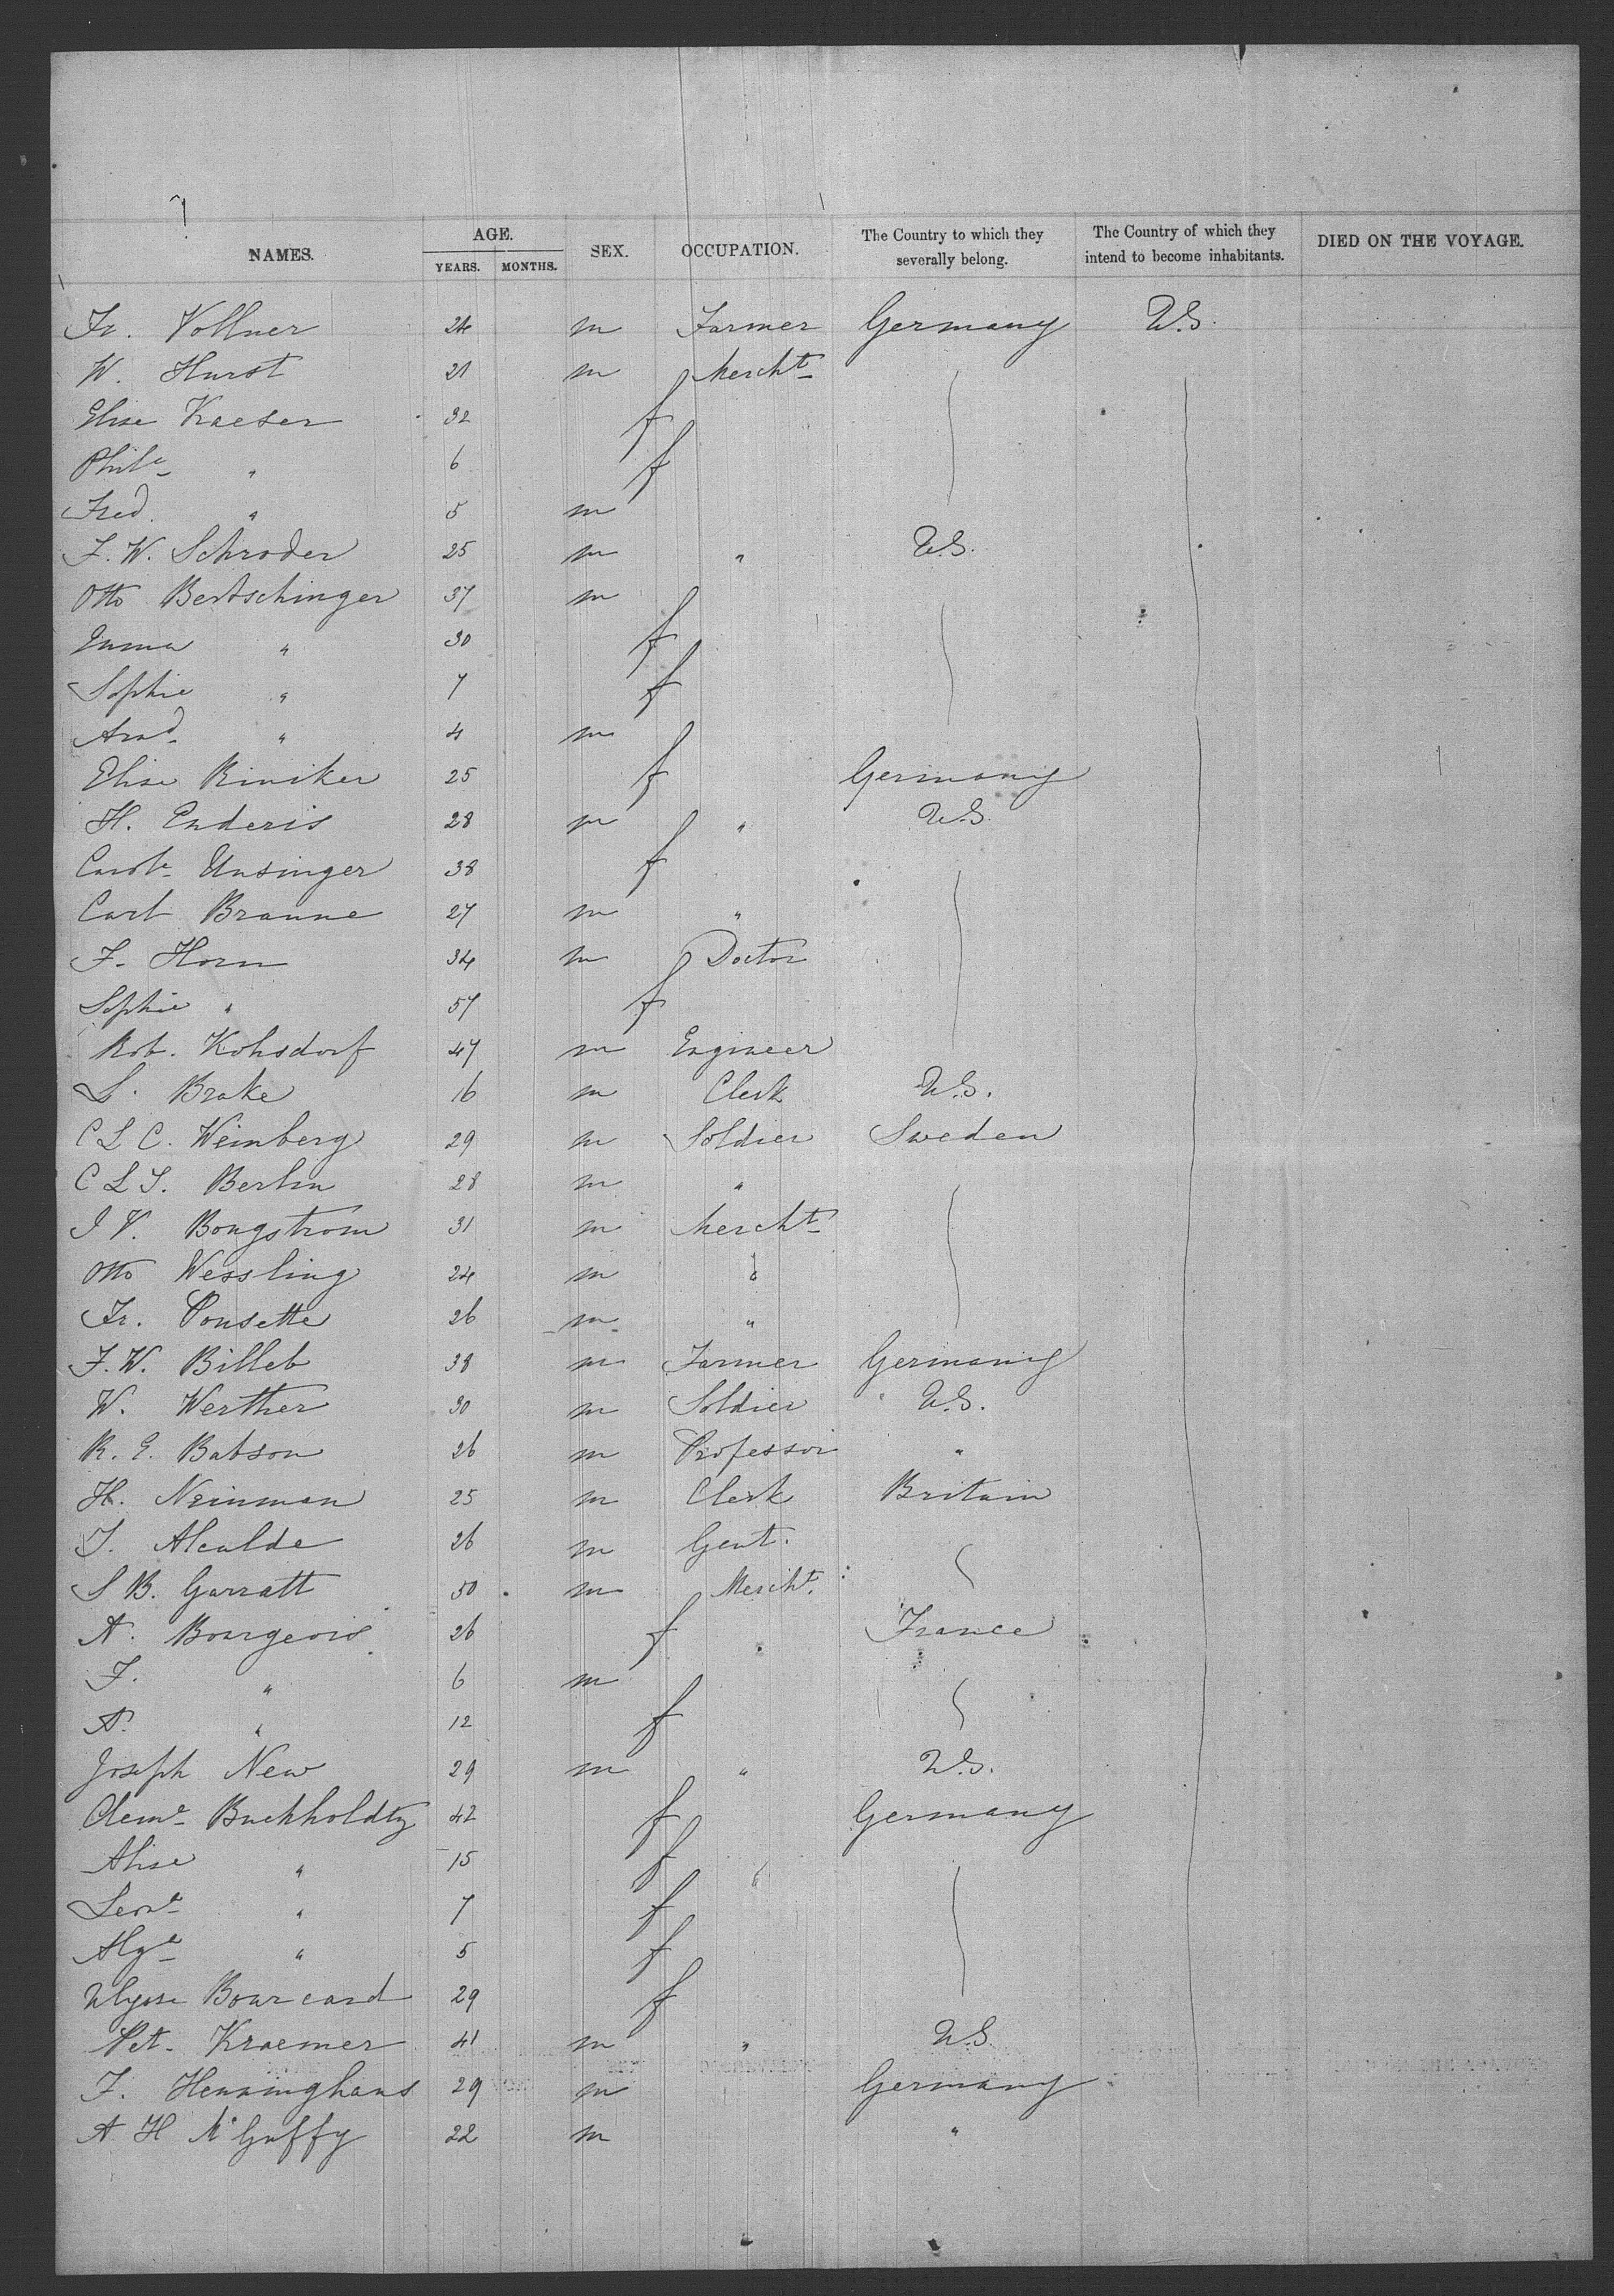 NAMES. AGE. YEARS. MONTHS. SEX. OCCUPATION. The Country to which they severally belong. The Country of which they intend to become inhabitants. DIED ON THE VOYAGE.
Fr. Vollner 24 m Farmer Germany U.S.
W. Hurst 21 m Mercht
Elise Kraeser 32 f
Phile " 6 f
Fred. " 5 m
F. W. Schroder 25 m " U.S.
Otto Bertschinger 37 m
Emma " 30 f
Sophie " 7 f
Arnd " 4 m
Elise Riniker 25 f Germany
H. Enderis 28 m " U.S.
Carole Unsinger 38 f
Carl Braune 27 m "
F. Horn 34 m Doctor
Sophie " 57 f
Rob. Kohsdorf 47 m Engineer
L. Brake 16 m Clerk U.S.
C L C. Weinberg 29 m Soldier Sweden
C L J. Berlin 28 m "
J V. Bongstrom 31 m Mercht
Otto Wessling 24 m "
Fr. Ponsette 26 m "
F. W. Billeb 38 m Farmer Germany
W. Werther 30 m Soldier U.S.
R. E. Babson 26 m Professor "
H. Neinman 25 m Clerk Britain
J. Alcalde 26 m Gent.
S B. Garratt 50 m Mercht.
A. Bourgeois 26 f France
F. " 6 m
A. " 12 f
Joseph New 29 m " U.S.
Cleme Buchholdtz 42 f Germany
Alise " 15 f "
Leone " 7 f
Alge " 5 f
Ulysse Bourcard 29 f
Pet. Kraemer 41 m " U.S.
F. Henninghaus 29 m Germany
A H McGuffy 22 m "